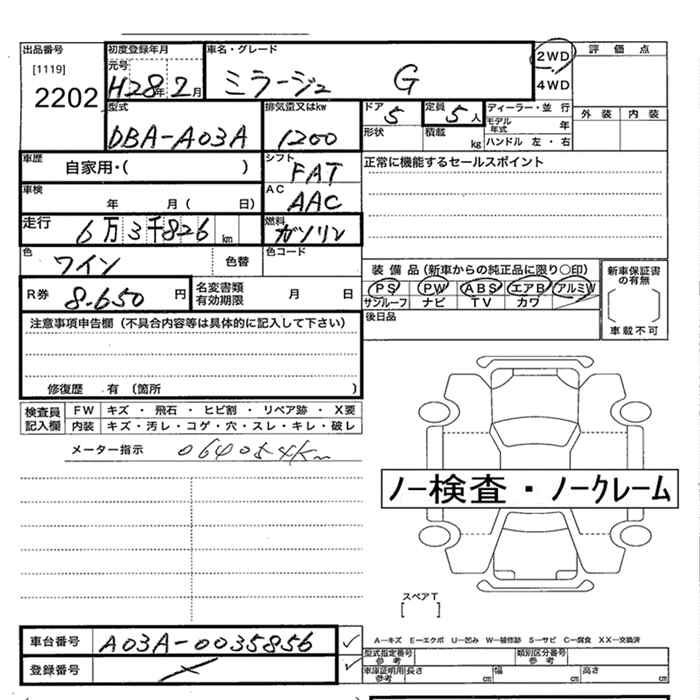 出品番号
[1119]
2202
初度登録年月
元号
H28年2月
車名・グレード
ミラージュ G
2WD
4WD
評価点
外装 内装
型式
DBA-A03A
排気量又はkw
1200
ドア
5
形状
定員
5人
積載 kg
ディーラー・並行
モデル年式 年
ハンドル 左・右
車歴
自家用・( )
シフト
FAT
正常に機能するセールスポイント
車検
年 月( 日)
AC
AAC
走行
6万3千826km
燃料
ガソリン
色
ワイン
色替
色コード
装備品(新車からの純正品に限り○印)
PS PW ABS エアB アルミW
サンルーフ ナビ TV カワ
新車保証書の有無
車載不可
R券 8.650円
名変書類有効期限 月 日
後日品
注意事項申告欄(不具合内容等は具体的に記入して下さい)
修復歴 有(箇所 )
検査員記入欄
FW キズ・飛石・ヒビ割・リペア跡・X要
内装 キズ・汚レ・コゲ・穴・スレ・キレ・破レ
メーター指示 064054km
ノー検査・ノークレーム
スペアT
[ ]
車台番号 A03A-0035856
登録番号
A-キズ E-エクボ U-凹み W-補修跡 S-サビ C-腐食 XX-交換済
型式指定番号参考
類別区分番号参考
車庫証明用参考 長さ cm 幅 cm 高さ cm